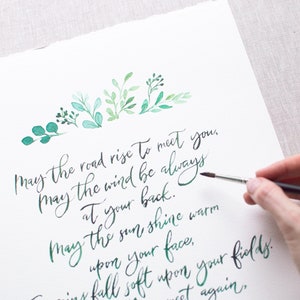 May the road rise to meet you,
May the wind be always
at your back.
May the sun shine warm
upon your face,
rains fall soft upon your fields.
meet again,